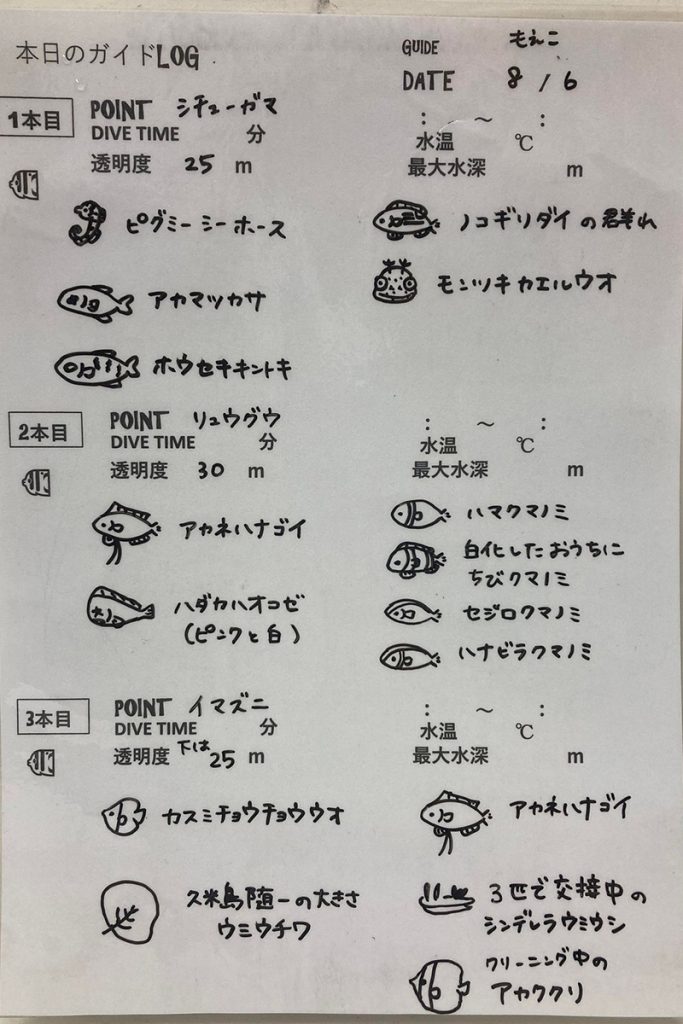 本日のガイドLOG
GUIDE もえこ
DATE 8 / 6
1本目
POINT シチューガマ
DIVE TIME 分
透明度 25 m
: ～ :
水温 ℃
最大水深 m
ピグミーシーホース
アカマツカサ
ホウセキキントキ
ノコギリダイの群れ
モンツキカエルウオ
2本目
POINT リュウグウ
DIVE TIME 分
透明度 30 m
: ～ :
水温 ℃
最大水深 m
アカネハナゴイ
ハダカハオコゼ
(ピンクと白)
ハマクマノミ
白化したおうちに
ちびクマノミ
セジロクマノミ
ハナビラクマノミ
3本目
POINT イマズニ
DIVE TIME 分
透明度 下は25 m
: ～ :
水温 ℃
最大水深 m
カスミチョウチョウウオ
久米島随一の大きさ
ウミウチワ
アカネハナゴイ
3匹で交接中の
シンデレラウミウシ
クリーニング中の
アカククリ